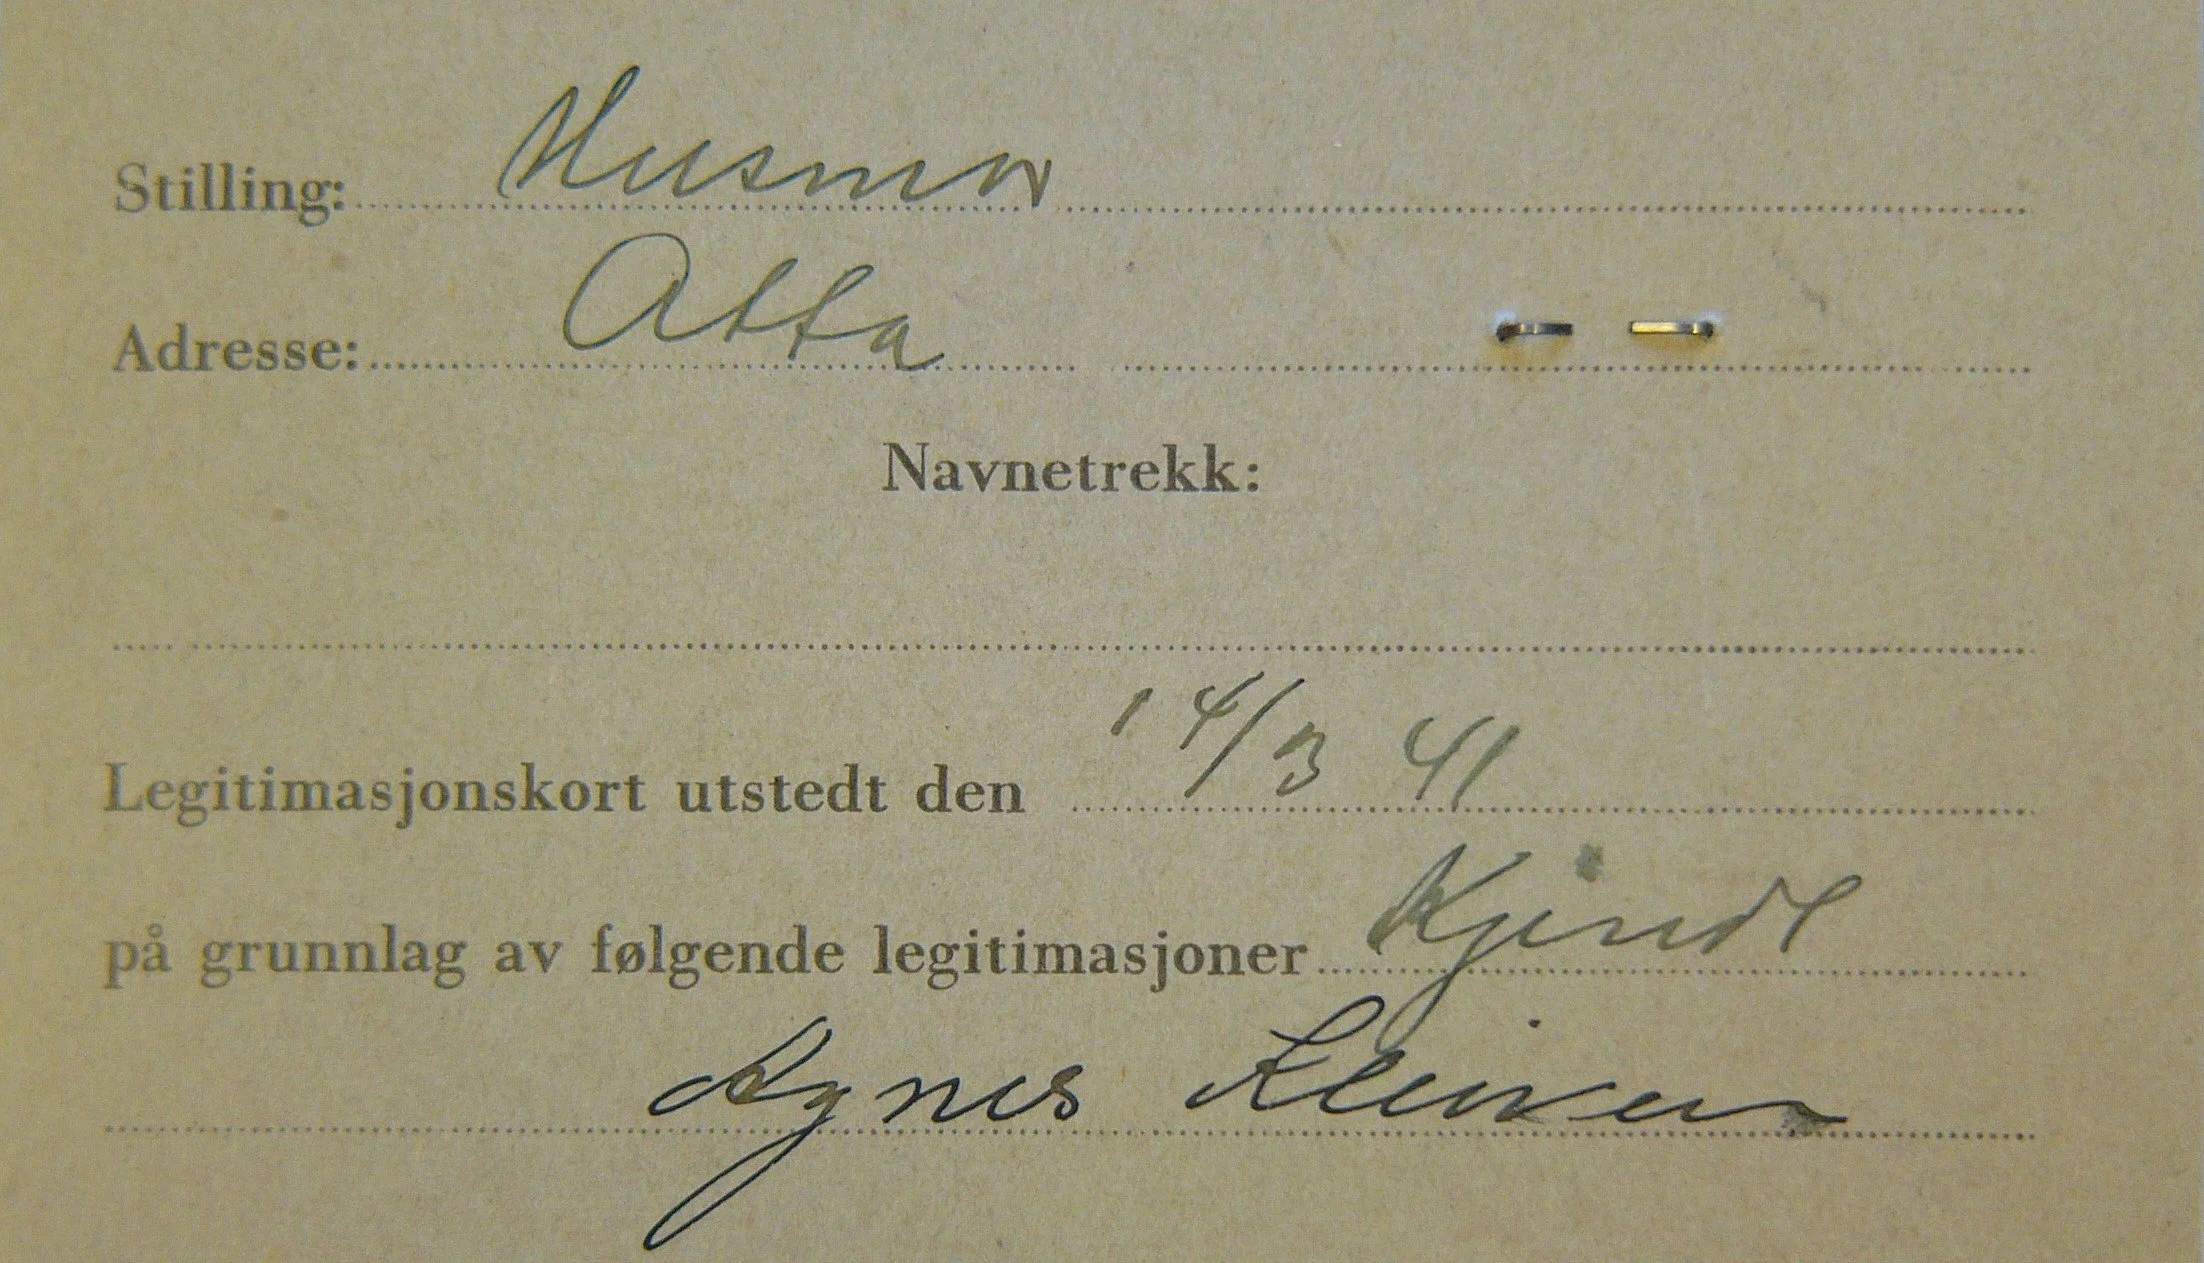 Stilling: Husmor
Adresse: Atta
Navnetrekk:
Legitimasjonskort utstedt den 14/3 41
på grunnlag av følgende legitimasjoner Kjendt
Agnes